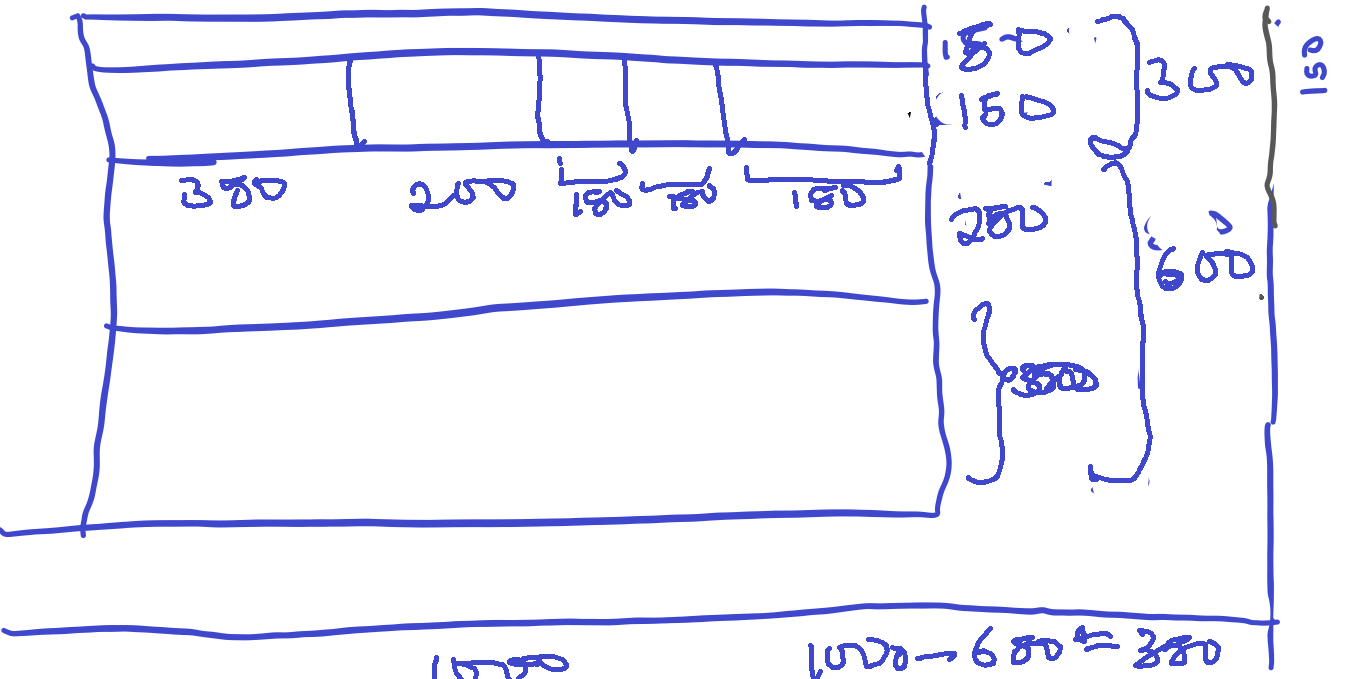 150
150
300
150
380
200
150
150
150
250
600
350
1000
1000 - 650 = 350